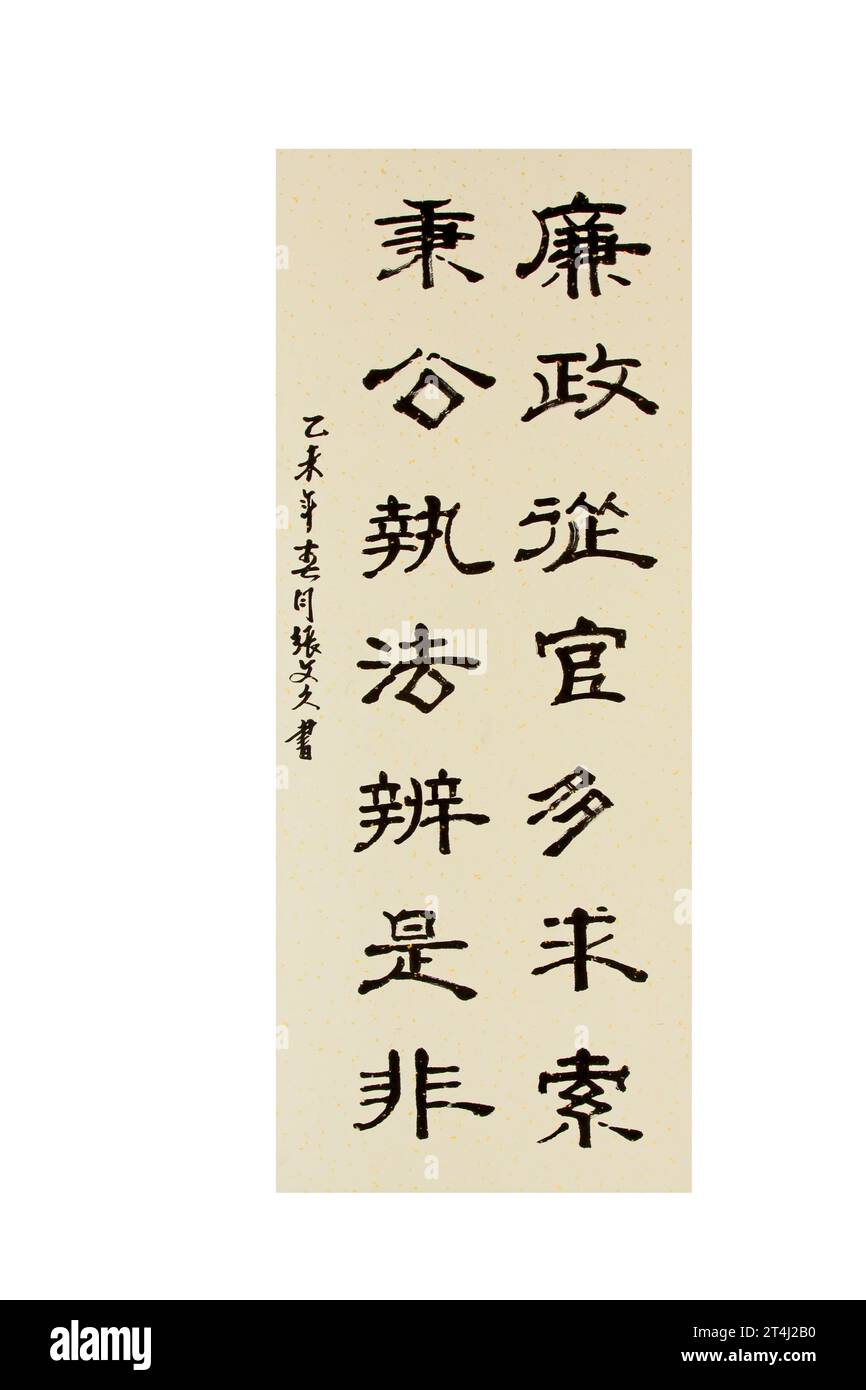 廉政從官多求索
秉公執法辨是非
乙未年春月張文久書
alamy
Image ID: 2T4J2B0
www.alamy.com